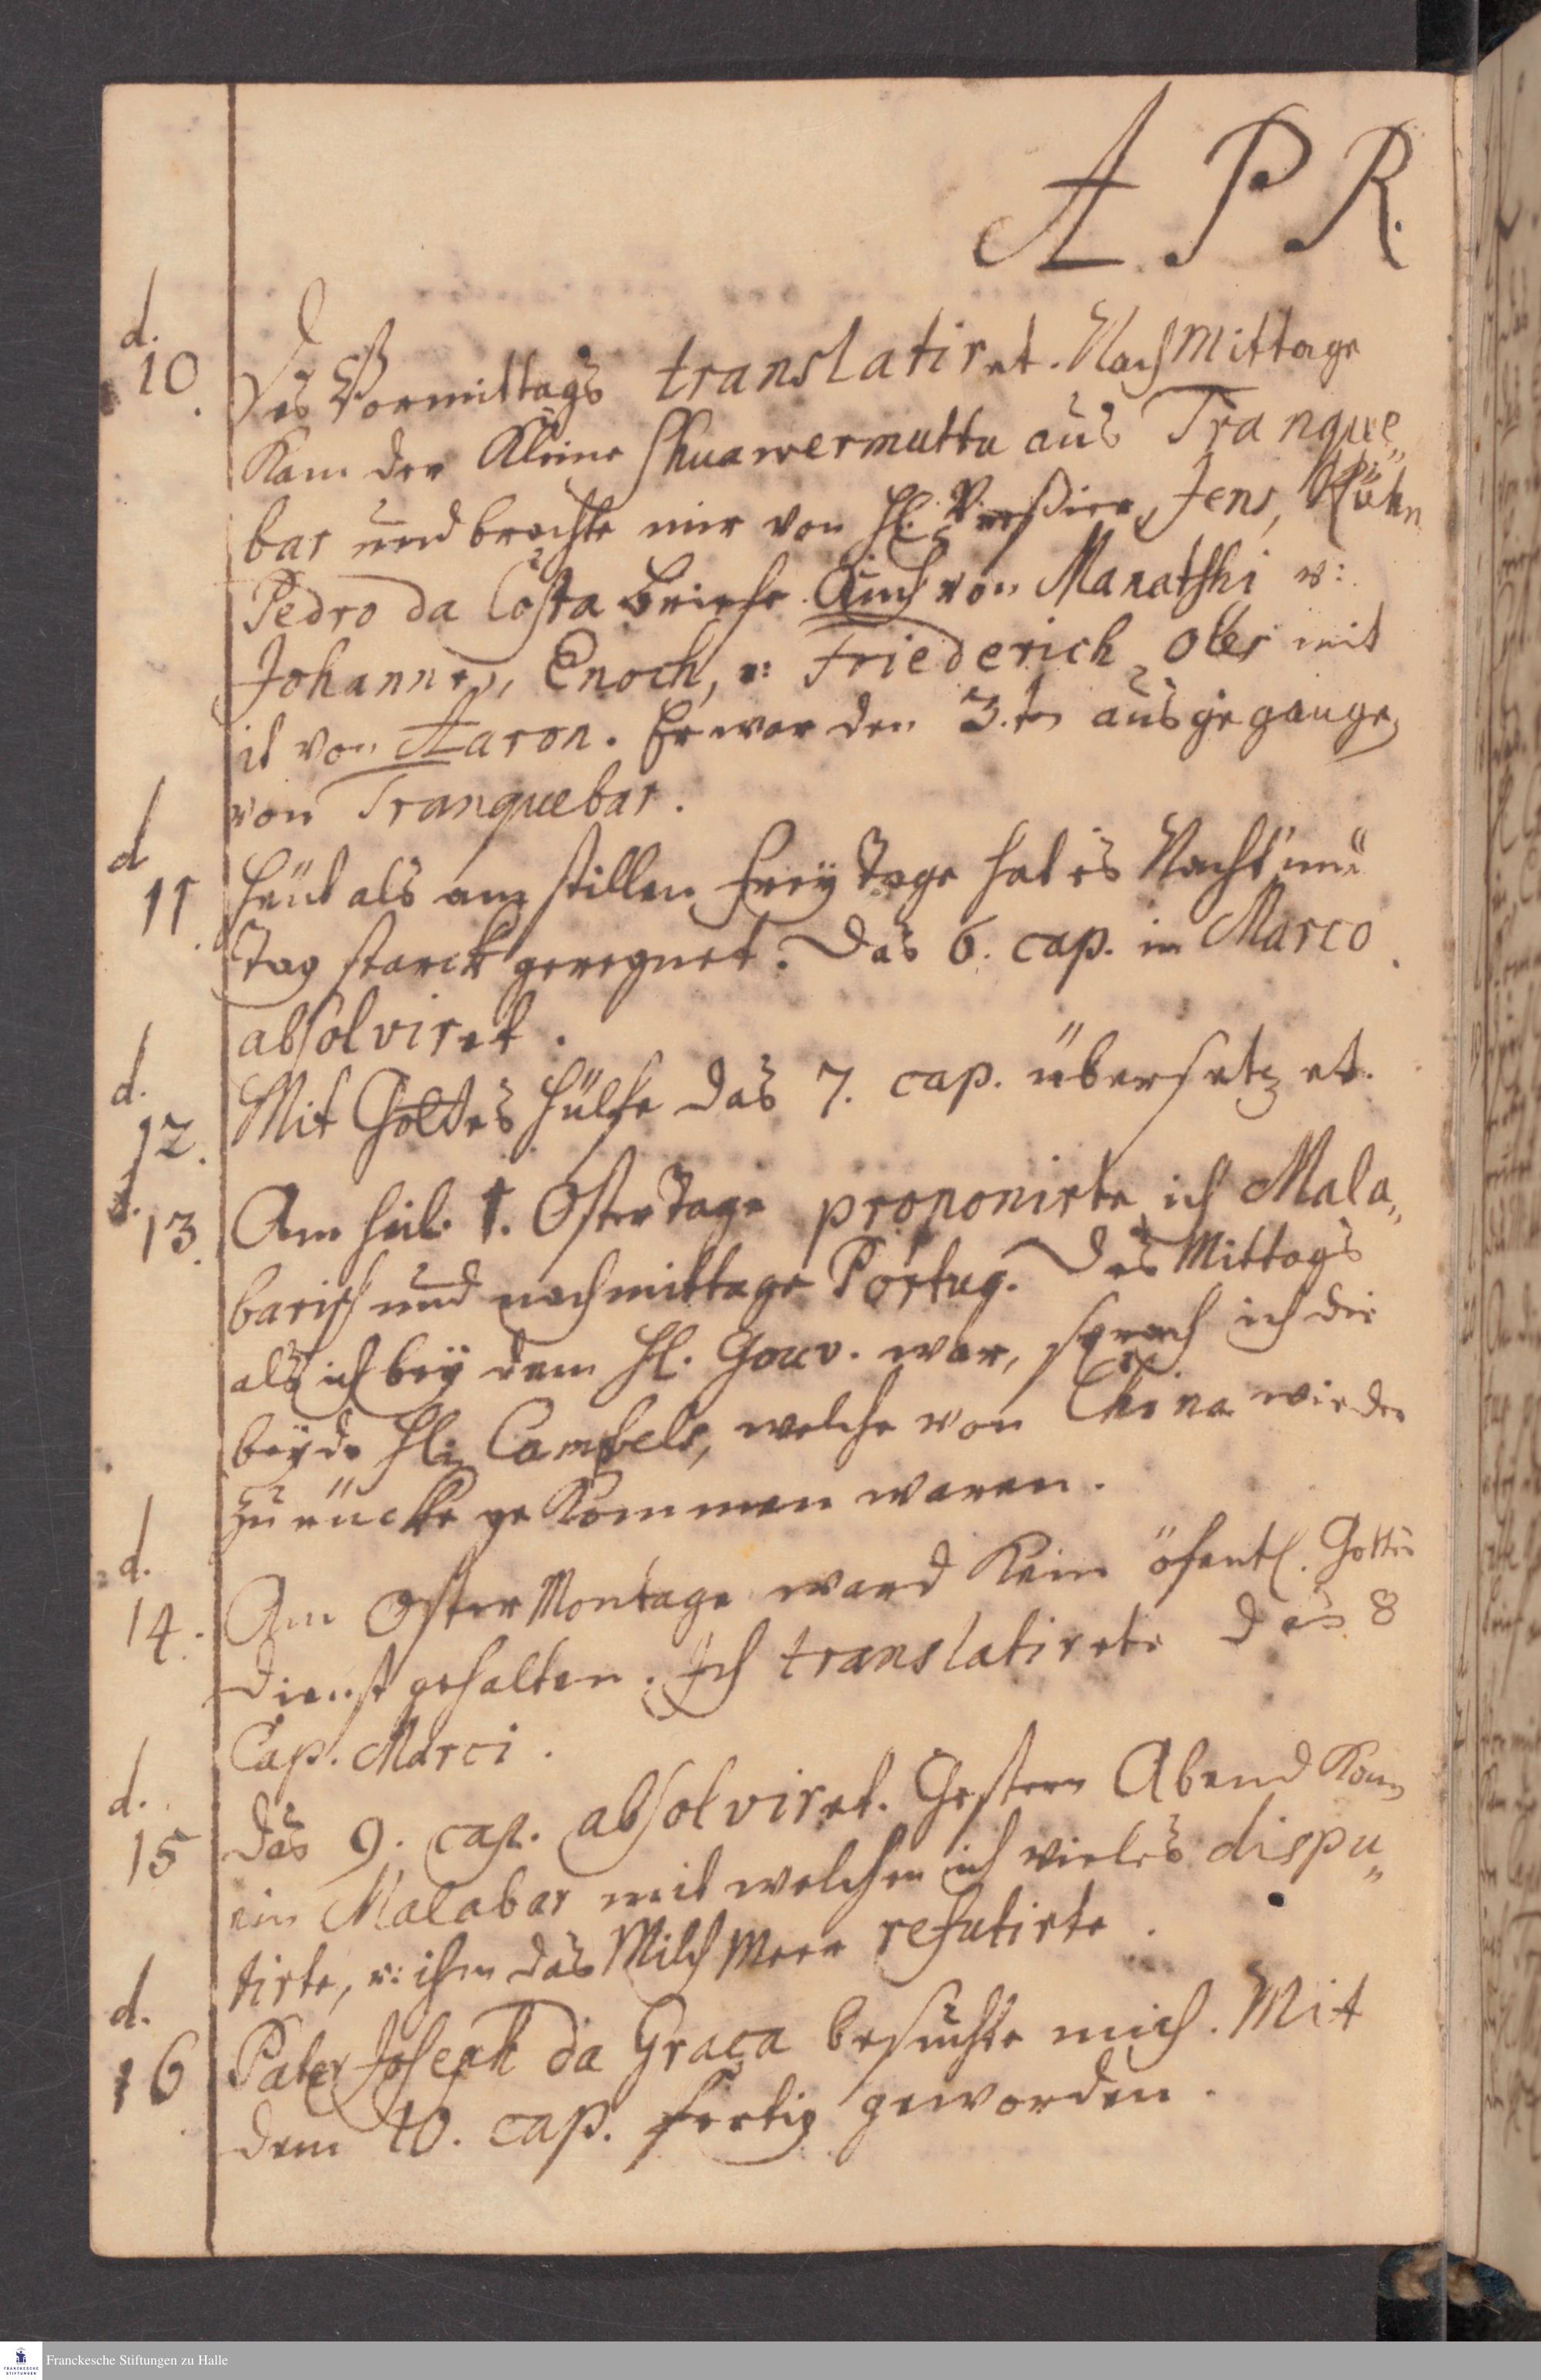 A P R.
d.
10. Des Vormittags translatiret. Nachmittage
Kam der Kleine Shuawermuttu aus Tranque„
bar und brachte mir von H. Pressier, Jens,
Pedro da Costa briefe. Auch von Manatshi u:
Johannes, Enoch, u: Friederich oles mit
it von Aaron. Er war den 3.ten ausgegangen
von Tranquebar.
d
11. Heut als am stillen FreyTage hat es Nacht und
Tag starck geregnet. Das 6. cap. in Marco
absolviret.
d.
12. Mit Gottes Hülfe das 7. cap. übersetzet.
d.
13. Am heil. 1. OsterTage proponirte ich Mala„
barisch und nachmittage Portug. Des Mittags
als ich bey dem H. Gouv. war, sprach ich die
beyde Hl. Cambels, welche von China wieder
zurücke geKommen waren.
d.
14. Am OsterMontage ward Kein öfentl. Gottes
dienst gehalten. Ich translatirete das 8
Cap. Marci.
d.
15 Das 9. cap. absolviret. Gestern Abend Kam
ein Malabar mit welchem ich vieles dispu„
tirte, u: ihm das MilchMeer refutirte.
d.
16 Pater Joseph da Graca besuchte mich. Mit
dem 10. cap. fertig geworden.
Franckesche Stiftungen zu Halle
FRANCKESCHE
STIFTUNGEN